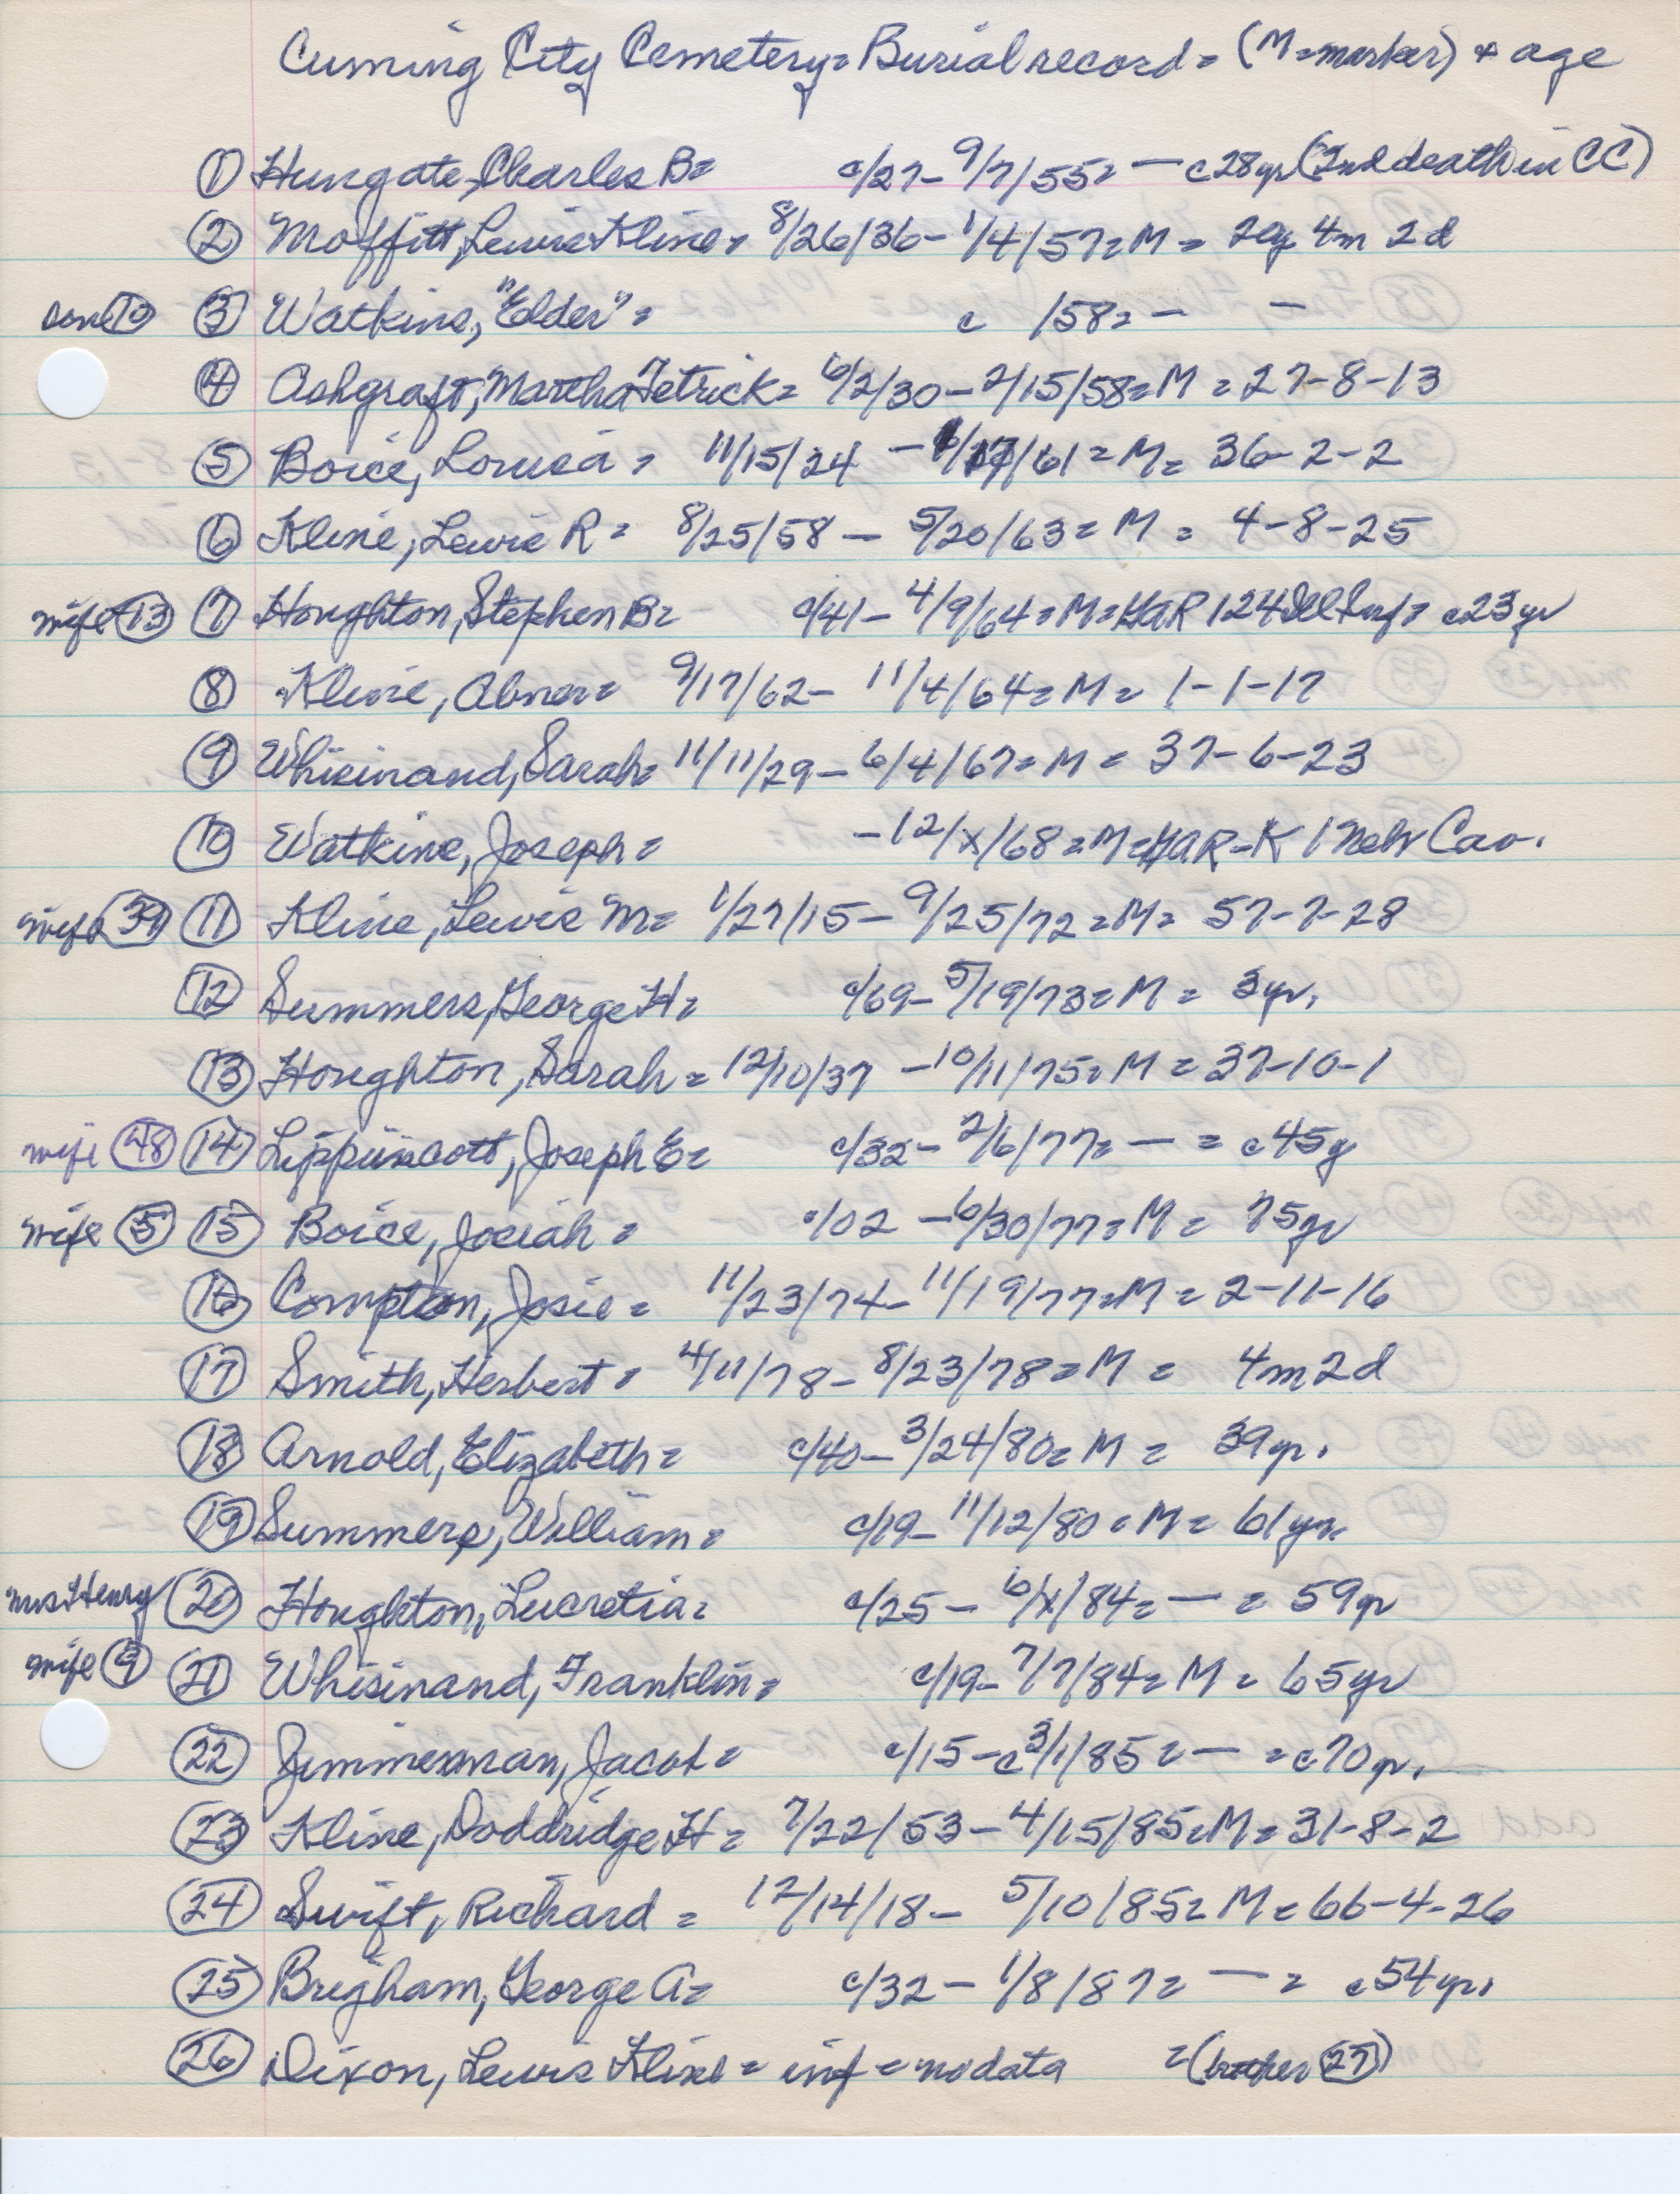 Cuming City Cemetery= Burial record = (M=marker) + age
① Hungate, Charles B= c/27- 9/7/55= — c28yr (2nd death in CC)
② Moffitt, Lewis Kline= 8/26/36- 1/4/57= M = 20y 4m 2d
son ⑩ ③ Watkins, "Elder" = c /58= — —
④ Ashgraft, Martha Tetrick= 6/2/30- 2/15/58=M = 27-8-13
⑤ Boice, Louisa = 11/15/24 - 1/17/61 = M= 36-2-2
⑥ Kline, Lewis R = 8/25/58 — 5/20/63= M = 4-8-25
wife ⑬ ⑦ Houghton, Stephen B= c/41- 4/9/64=M=GAR 124 Ill Inf= c23yr
⑧ Kline, Abner= 9/17/62- 11/4/64=M= 1-1-17
⑨ Whisinand, Sarah= 11/11/29- 6/4/67=M = 37-6-23
⑩ Watkins, Joseph= -12/x/68=M=GAR-K 1 Nebr Cav.
wife ㊴ ⑪ Kline, Lewis M= 1/27/15- 9/25/72=M= 57-7-28
⑫ Summers, George H= c/69- 5/19/73=M = 3yr.
⑬ Houghton, Sarah = 12/10/37 -10/11/75=M = 37-10-1
wife ㊽ ⑭ Lippincott, Joseph E= c/32- 2/6/77= — = c45y
wife ⑤ ⑮ Boice, Josiah = c/02 -6/30/77=M = 75yr
⑯ Compton, Josie = 11/23/74- 11/19/77=M = 2-11-16
⑰ Smith, Herbert = 4/11/78- 8/23/78=M = 4m2d
⑱ Arnold, Elizabeth= c/40- 3/24/80=M = 39yr.
⑲ Summers, William= c/19- 11/12/80=M= 61yr.
Mrs Henry ⑳ Houghton, Lucretia= c/25 - 6/x/84= — = 59yr
wife ⑨ ㉑ Whisinand, Franklin= c/19- 7/7/84=M = 65yr
㉒ Zimmerman, Jacob= c/15-c3/1/85= — =c70yr.
㉓ Kline, Doddridge H = 7/22/53- 4/15/85=M=31-8-2
㉔ Swift, Richard = 12/14/18- 5/10/85=M=66-4-26
㉕ Brigham, George A= c/32 - 1/8/87= — = c54yr.
㉖ Dixon, Lewis Kline= inf = no data =(brother ㉗)